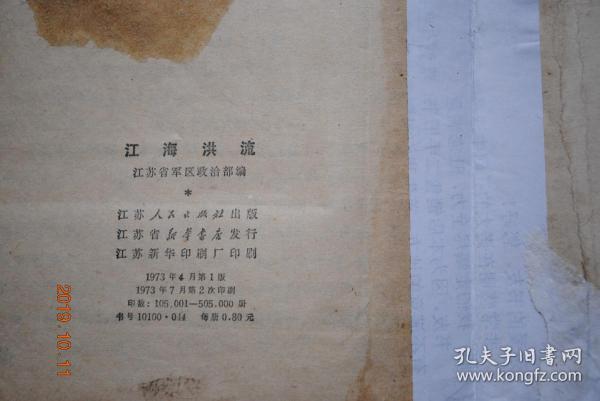 江海洪流
江苏省军区政治部编
*
江苏人民出版社出版
江苏省新华书店发行
江苏新华印刷厂印刷
1973年4月第1版
1973年7月第2次印刷
印数：105,001—505,000册
书号10100·014 每册0.80元
2019.10.11
孔夫子旧书网
www.kongfz.com